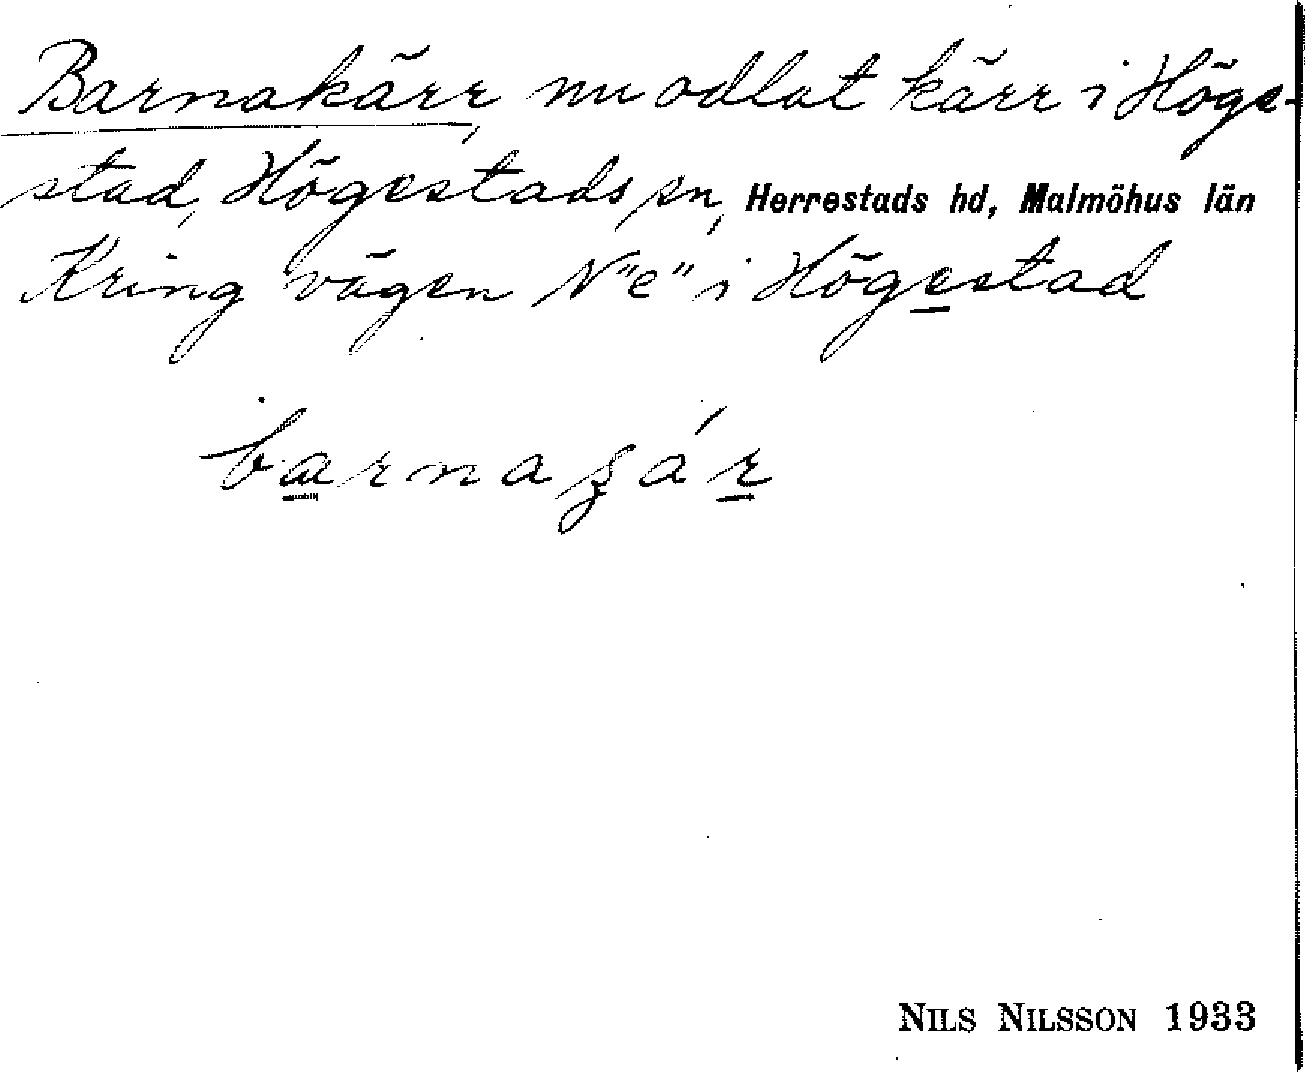 Barnakärr, nu odlat kärr i Höge-
stad, Högestads sn, Herrestads hd, Malmöhus län
Kring vägen N "e" i Högestad
NILS NILSSON 1933